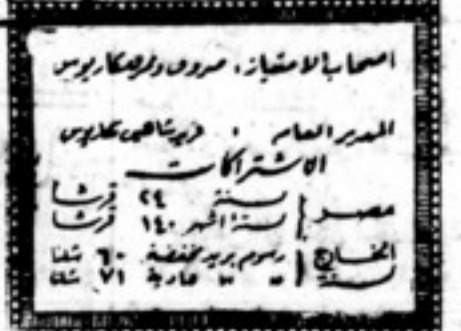 اصحاب الامتياز: صروف ونمر ومكاريوس
المدير العام :
الاشتراكات
مصر سنة ٢٤٠ قرشا
ستة اشهر ١٤٠ قرشا
الخارج رسوم بريد مخفضة ٦٠ شلنا
سنة " " عادية ٧١ شلنا